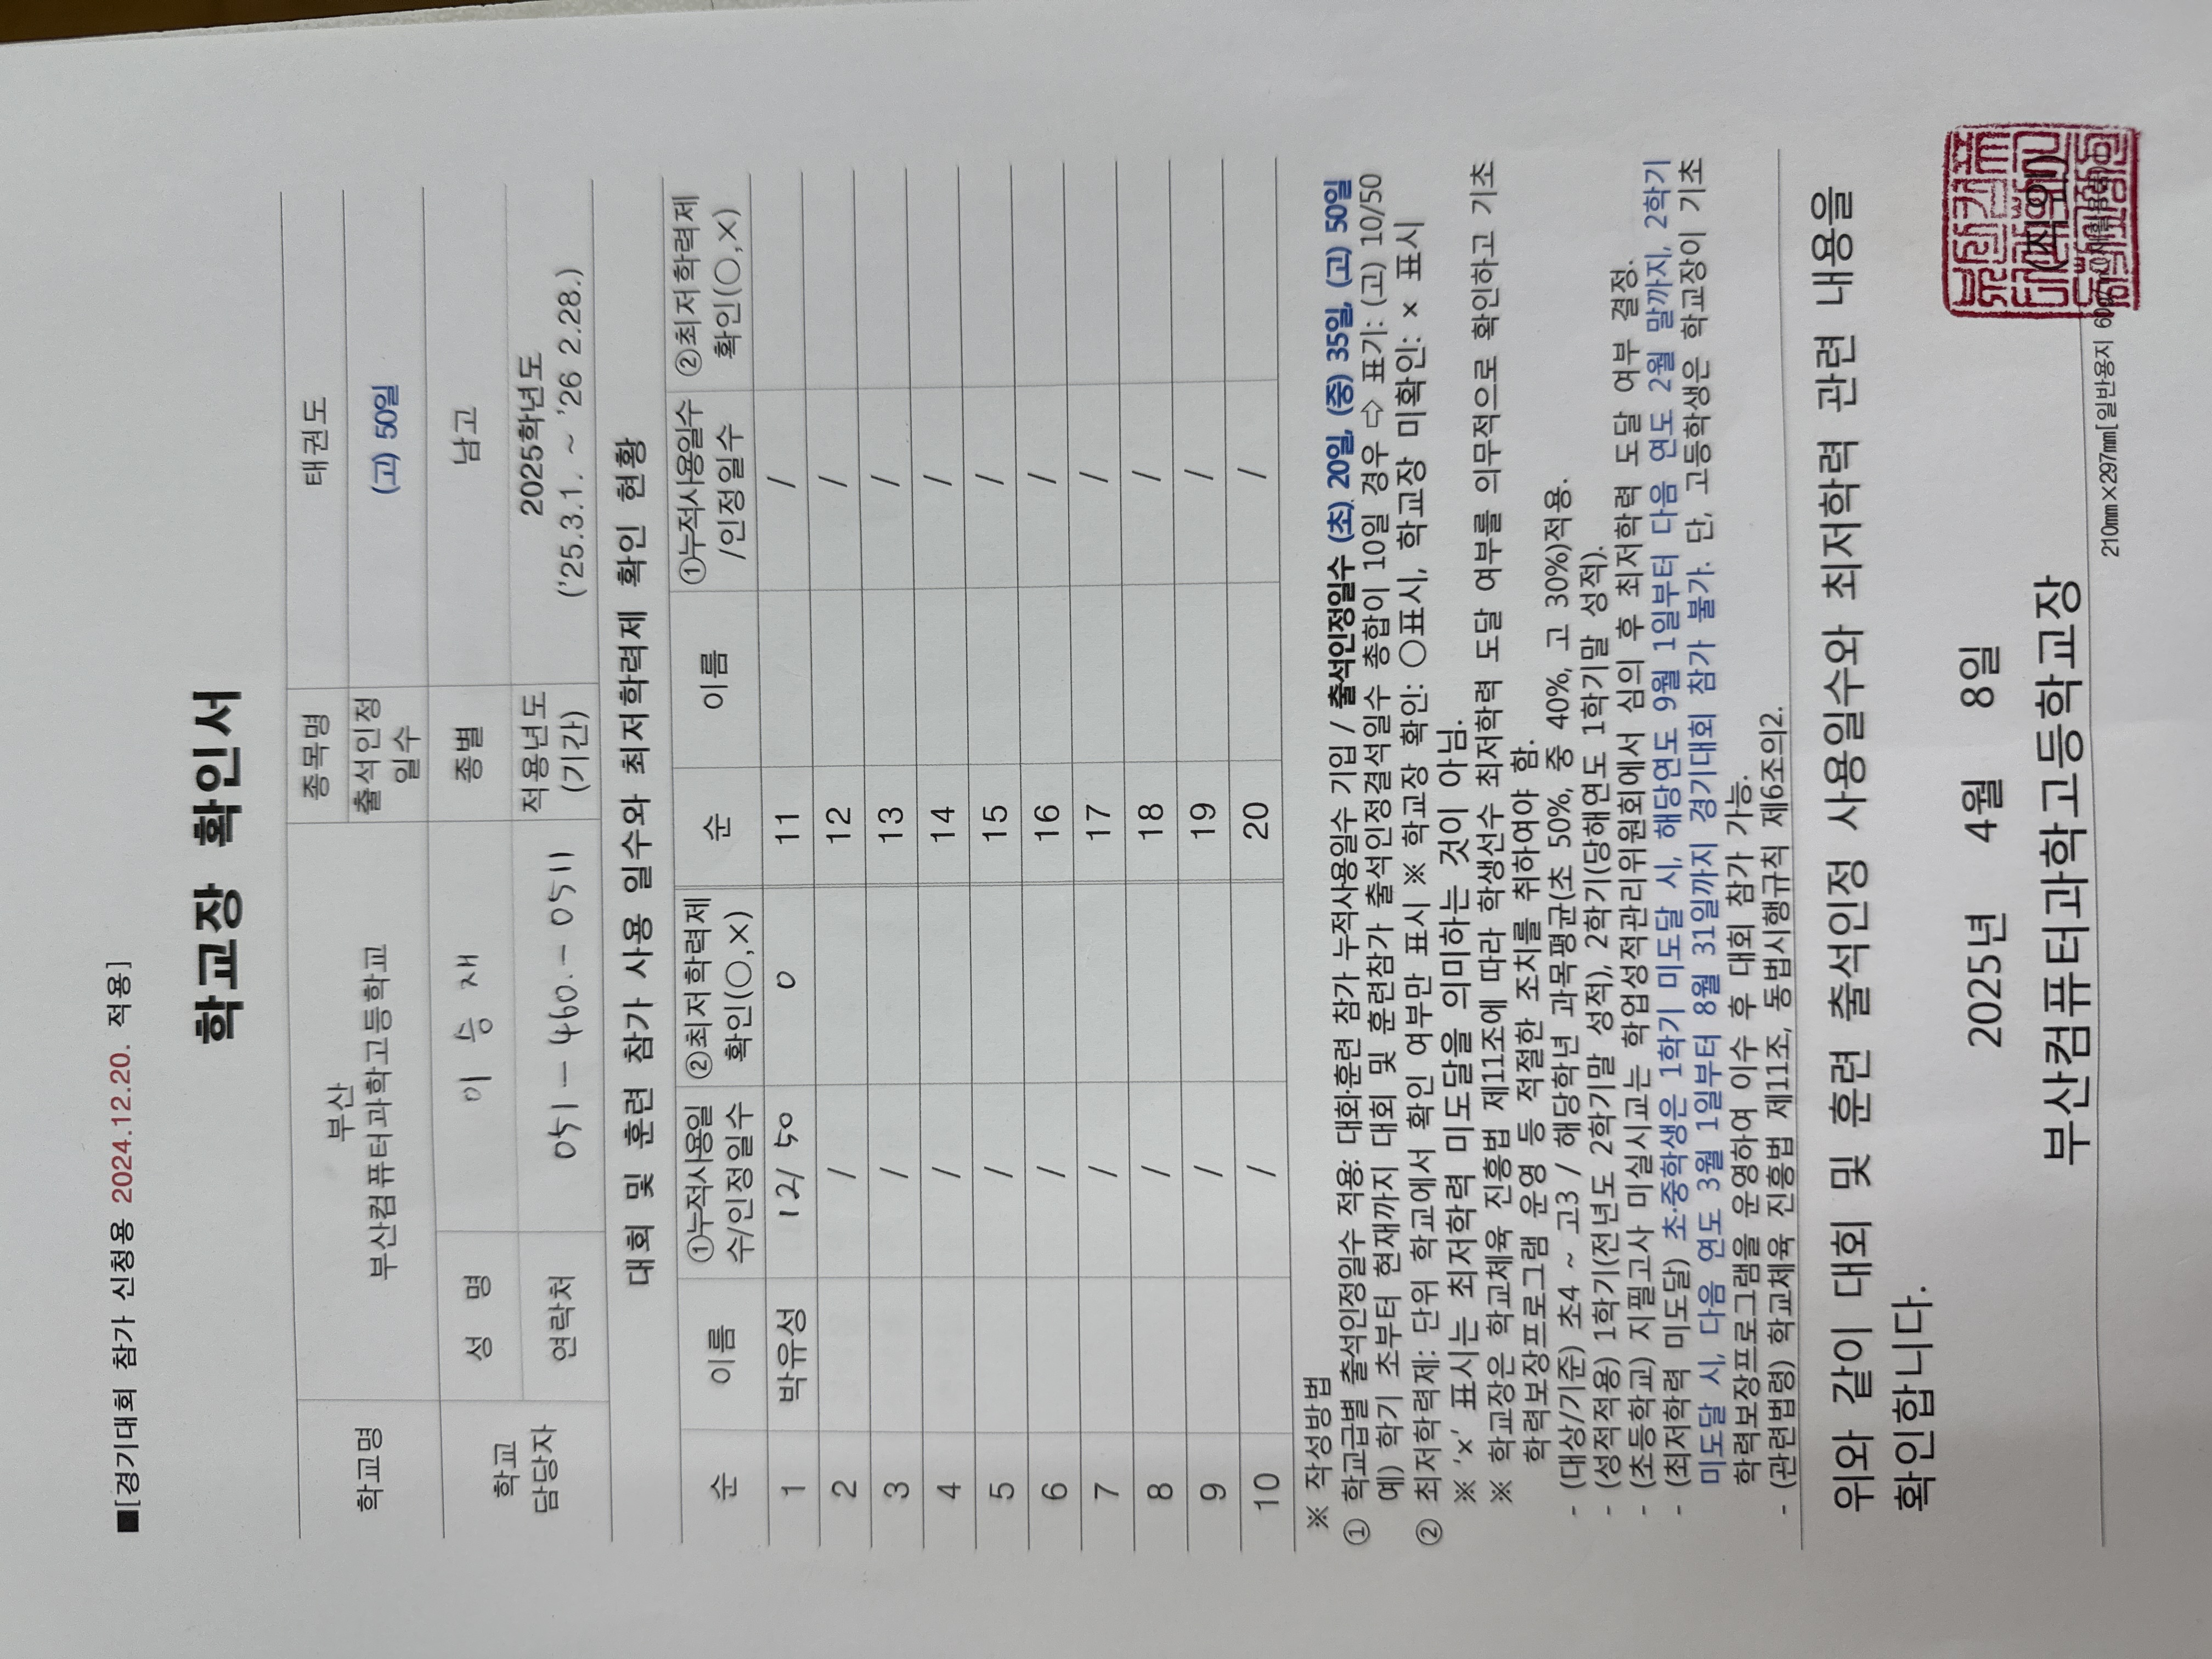 ■[경기대회 참가 신청용 2024.12.20. 적용]
학교장 확인서
학교명 부산 종목명 태권도
부산컴퓨터과학고등학교 출석인정일수 (고) 50일
학교 담당자 성 명 이 승 재 종별 남고
연락처 051-460.-0511 적용년도 (기간) 2025학년도
('25.3.1. ~ '26 2.28.)
대회 및 훈련 참가 사용 일수와 최저학력제 확인 현황
순 이름 ①누적사용일수/인정일수 ②최저학력제 확인(○,×) 순 이름 ①누적사용일수/인정일수 ②최저학력제 확인(○,×)
1 박유성 12/50 0 11 /
2 / 12 /
3 / 13 /
4 / 14 /
5 / 15 /
6 / 16 /
7 / 17 /
8 / 18 /
9 / 19 /
10 / 20 /
※ 작성방법
① 학교급별 출석인정일수 적용: 대회·훈련 참가 누적사용일수 기입 / 출석인정일수 (초) 20일, (중) 35일, (고) 50일
예) 학기 초부터 현재까지 대회 및 훈련참가 출석인정결석일수 총합이 10일 경우 ⇨ 표기: (고) 10/50
② 최저학력제: 단위 학교에서 확인 여부만 표시 ※ 학교장 확인: ○표시, 학교장 미확인: × 표시
※ 'x' 표시는 최저학력 미도달을 의미하는 것이 아님.
※ 학교장은 학교체육 진흥법 제11조에 따라 학생선수 최저학력 도달 여부를 의무적으로 확인하고 기초
학력보장프로그램 운영 등 적절한 조치를 취하여야 함.
- (대상/기준) 초4 ~ 고3 / 해당학년 과목평균(초 50%, 중 40%, 고 30%)적용.
- (성적적용) 1학기(전년도 2학기말 성적), 2학기(당해연도 1학기말 성적).
- (초등학교) 지필고사 미실시교는 학업성적관리위원회에서 심의 후 최저학력 도달 여부 결정.
- (최저학력 미도달) 초·중학생은 1학기 미도달 시, 해당연도 9월 1일부터 다음 연도 2월 말까지, 2학기
미도달 시, 다음 연도 3월 1일부터 8월 31일까지 경기대회 참가 불가. 단, 고등학생은 학교장이 기초
학력보장프로그램을 운영하여 이수 후 대회 참가 가능.
- (관련법령) 학교체육 진흥법 제11조, 동법시행규칙 제6조의2.
위와 같이 대회 및 훈련 출석인정 사용일수와 최저학력 관련 내용을
확인합니다.
2025년 4월 8일
부산컴퓨터과학고등학교장 (직인)
210㎜×297㎜[일반용지